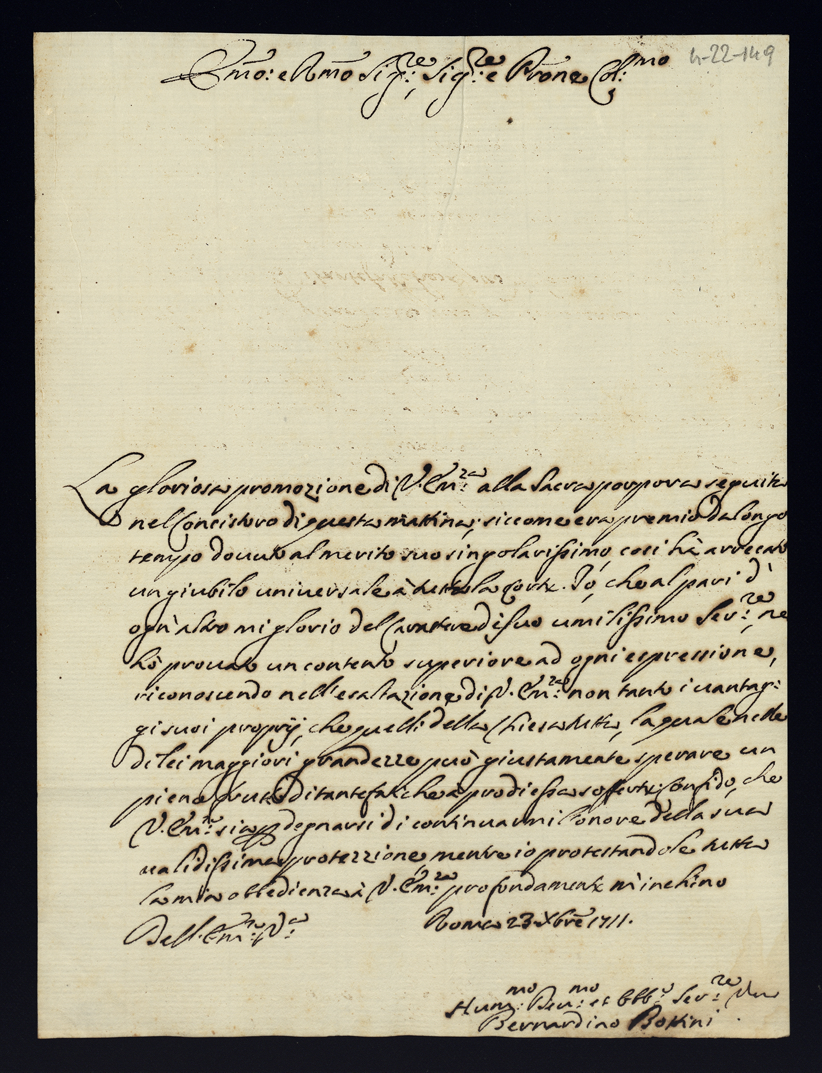 Em̃o: e Rm̃o Sig:re, Sig:re e Pr̃one Col:mo
4-22-149
La gloriosa promozione di V. Em:za alla Sacra porpora seguita
nel Concistoro di questa mattina, siccome era premio da longo
tempo dovuto al merito suo singolarissimo, così hà arrecato
un giubilo universale à tutta la Corte. Io, che al pari d'
ogn'altro mi glorio del Carattere di suo umilissimo Ser:re, ne
hò provato un contento superiore ad ogni espressione,
riconoscendo nell'esaltazione di V. Em:za non tanto i vantag:
gi suoi proprij, che quelli della Chiesa tutta, la quale nelle
di lei maggiori grandezze può giustamente sperare un
pieno frutto di tante fatiche à prò di essa sofferte. Confido, che
V. Em:za sia per degnarsi di continuarmi l'onore della sua
validissima protezzione, mentre io protestandole tutta
la mia obbedienza à V. Em:za profondamente m'inchino
Dell'Em:za V:a
Roma 23 Xbre 1711.
Hum:mo Deu:mo et Obb:o Ser:re Vero
Bernardino Bottini